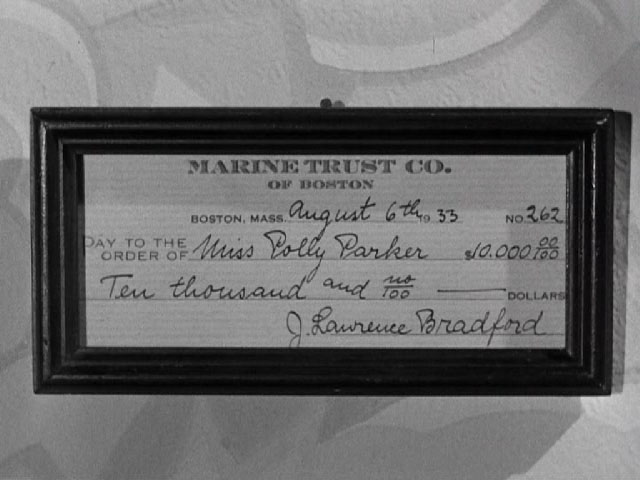 MARINE TRUST CO.
OF BOSTON
BOSTON, MASS. August 6th 1933 NO. 262
PAY TO THE
ORDER OF Miss Polly Parker $10.000 00/100
Ten thousand and no/100 DOLLARS
J. Lawrence Bradford